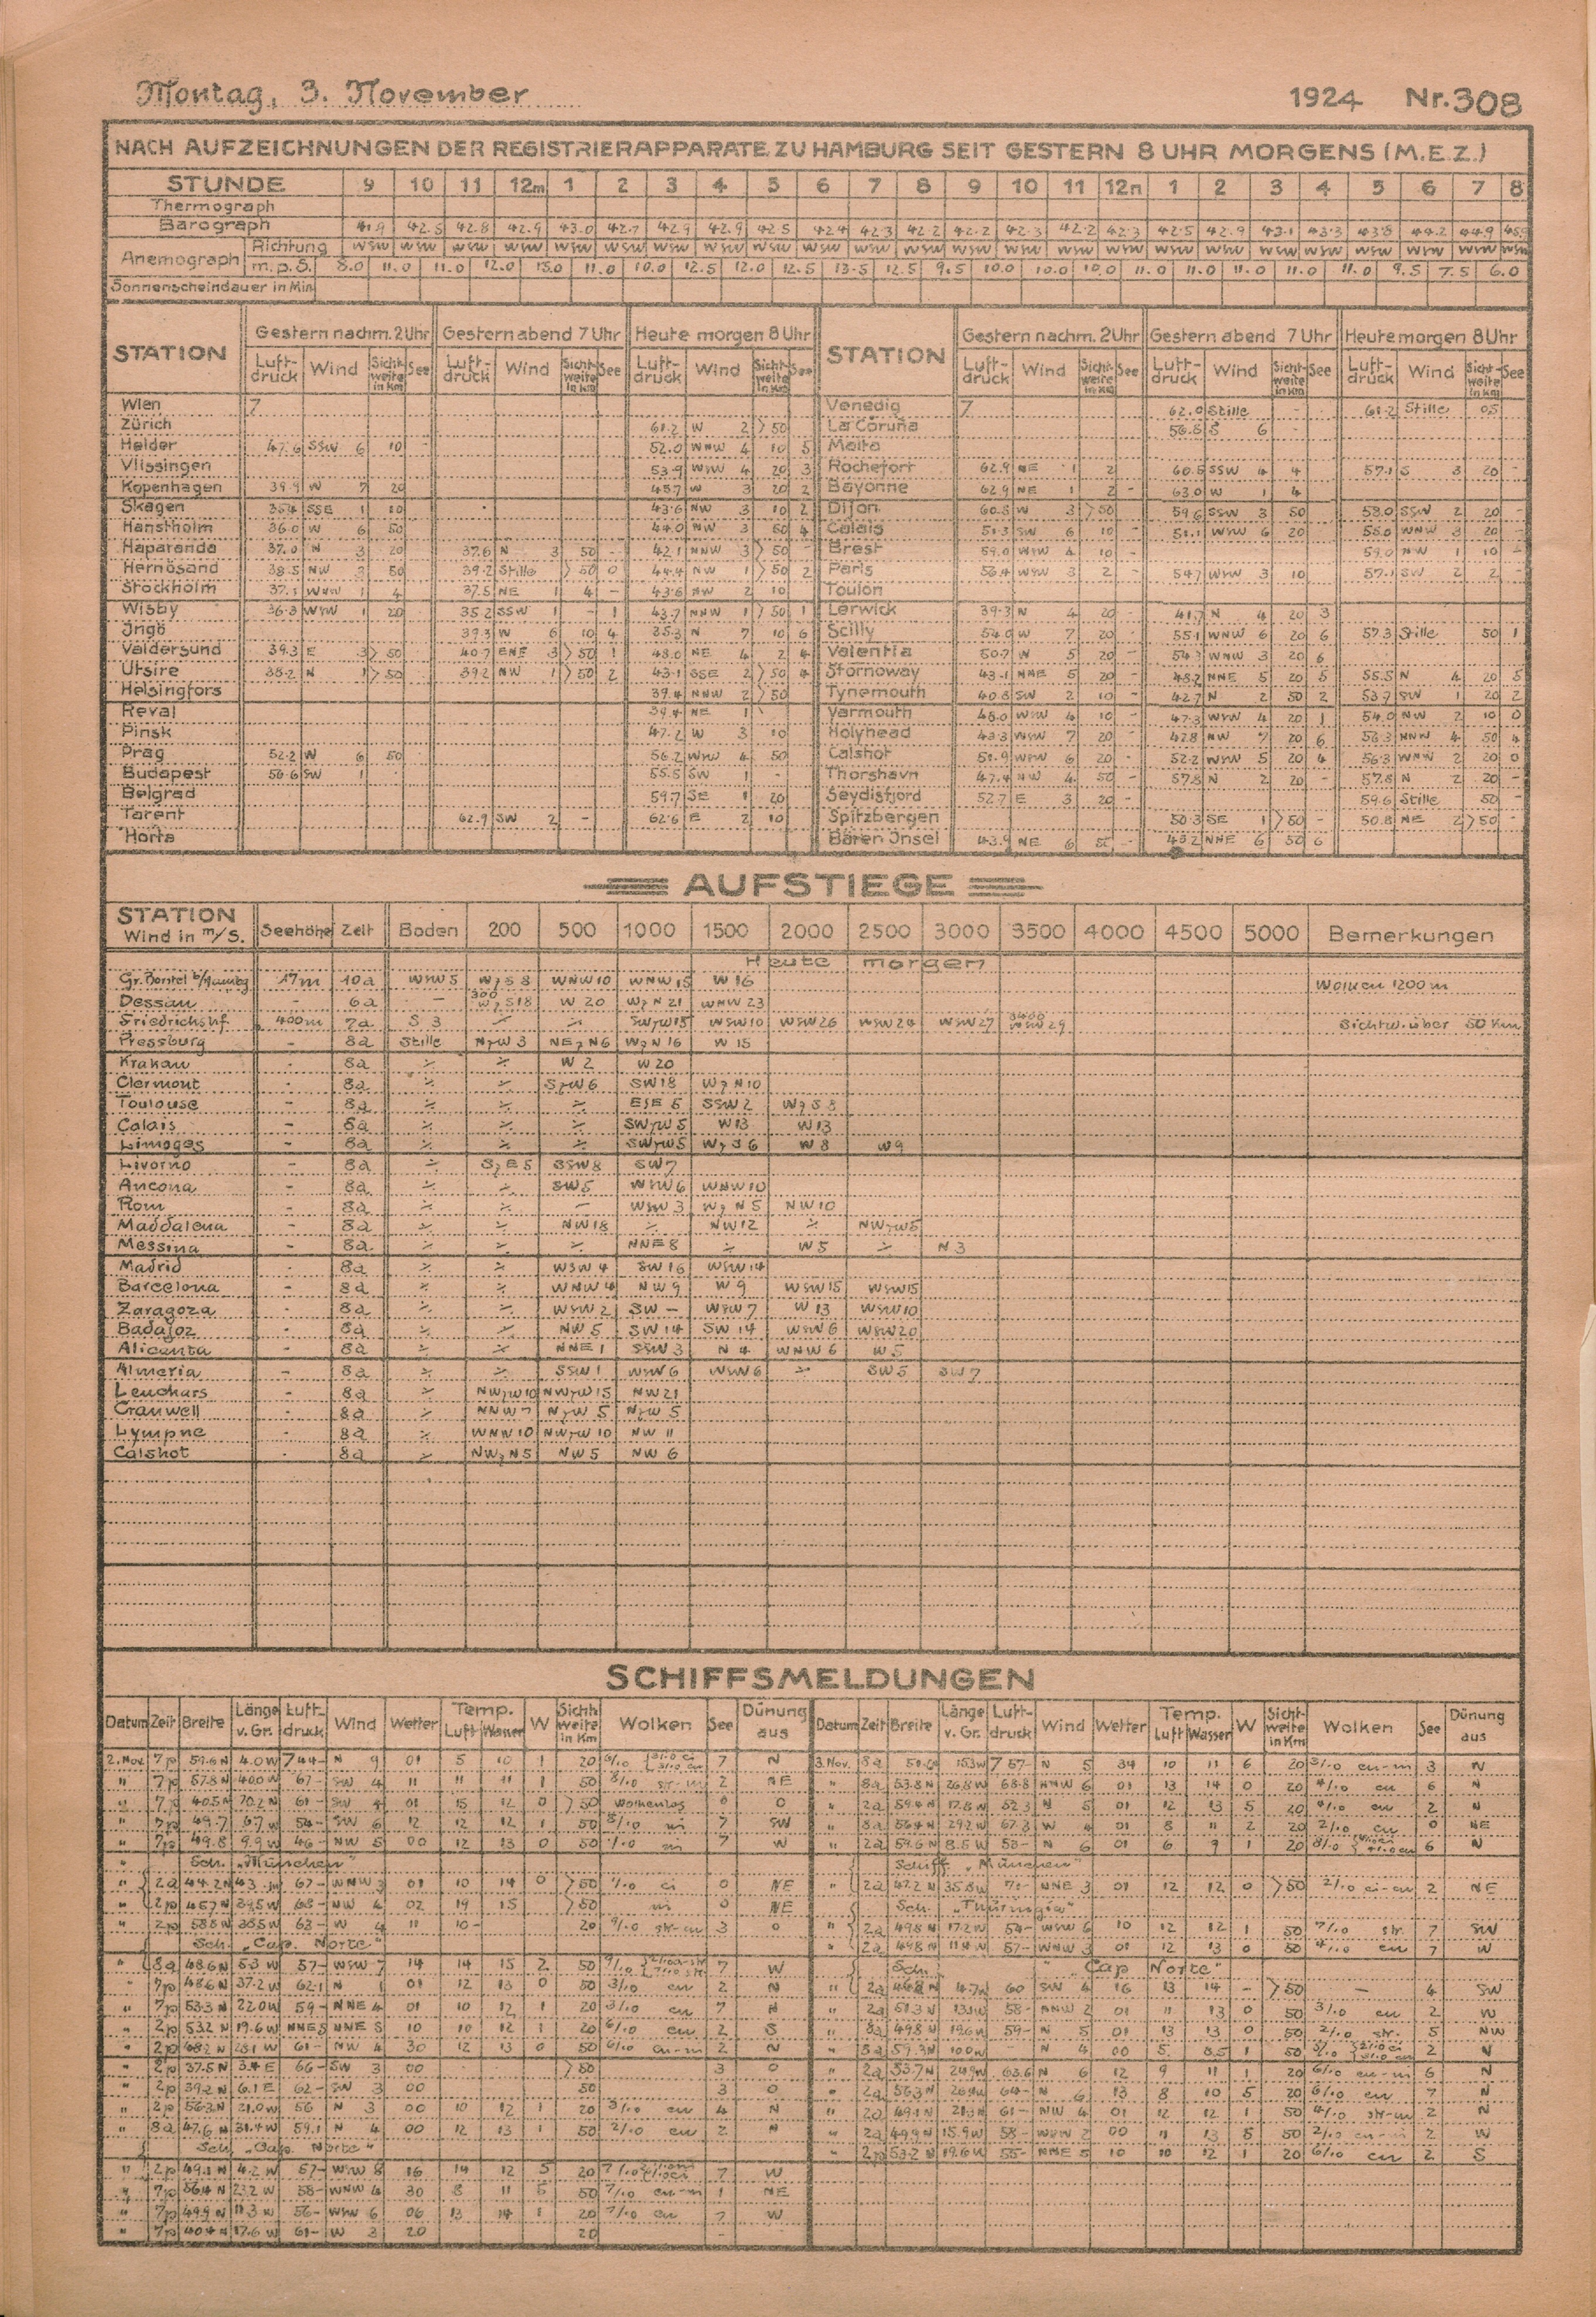 Montag, 3. November 1924 Nr. 308
NACH AUFZEICHNUNGEN DER REGISTRIERAPPARATE ZU HAMBURG SEIT GESTERN 8 UHR MORGENS (M.E.Z.)
STUNDE 9 10 11 12m 1 2 3 4 5 6 7 8 9 10 11 12n 1 2 3 4 5 6 7 8
Thermograph
Barograph 41.9 42.5 42.8 42.9 43.0 42.7 42.9 42.9 42.5 42.4 42.3 42.2 42.2 42.3 42.2 42.3 42.5 42.9 43.1 43.3 43.8 44.2 44.9 45.9
Anemograph Richtung WSW WSW WSW WSW WSW WSW WSW WSW WSW WSW WSW WSW WSW WSW WSW WSW WSW WSW WSW WSW WSW WSW WSW WSW
m.p.S. 8.0 11.0 11.0 12.0 13.0 11.0 10.0 12.5 12.0 12.5 13.5 12.5 9.5 10.0 10.0 10.0 11.0 11.0 11.0 11.0 11.0 9.5 7.5 6.0
Sonnenscheindauer in Min
STATION Gestern nachm. 2 Uhr Gestern abend 7 Uhr Heute morgen 8 Uhr STATION Gestern nachm. 2 Uhr Gestern abend 7 Uhr Heute morgen 8 Uhr
Luftdruck Wind Sichtweite in Km See Luftdruck Wind Sichtweite in Km See Luftdruck Wind Sichtweite in Km See Luftdruck Wind Sichtweite in Km See Luftdruck Wind Sichtweite in Km See Luftdruck Wind Sichtweite in Km See
Wien 7 Venedig 7 62.0 Stille - 61.2 Stille 05
Zürich 61.2 W 2 >50 La Coruña 56.8 S 6
Helder 47.6 SSW 6 10 - 52.0 WNW 4 10 5 Malta
Vlissingen 53.9 WSW 4 20 3 Rochefort 62.9 NE 1 2 60.5 SSW 4 4 57.1 S 3 20 -
Kopenhagen 39.9 W 7 20 45.7 W 3 20 2 Bayonne 62.9 NE 1 2 - 63.0 W 1 4
Skagen 35.4 SSE 1 10 43.6 NW 3 10 2 Dijon 60.8 W 3 >50 59.6 SSW 3 50 58.0 SSW 2 20 -
Hanstholm 36.0 W 6 50 44.0 NW 3 50 4 Calais 51.3 SW 6 10 - 51.1 WSW 6 20 55.0 WNW 3 20 -
Haparanda 37.0 N 3 20 37.6 N 3 50 - 42.1 NNW 3 >50 Brest 59.0 WSW 4 10 - 59.0 NW 1 10
Hernösand 38.5 NW 3 50 39.2 Stille >50 0 44.4 NW 1 >50 2 Paris 56.4 WSW 3 2 - 54.7 WSW 3 10 57.1 SW 2 2 -
Stockholm 37.1 WNW 1 4 37.5 NE 1 4 - 43.6 NW 2 10 Toulon
Wisby 36.3 WSW 1 20 35.2 SSW 1 - 1 43.7 NNW 1 >50 1 Lerwick 39.3 N 4 20 - 41.7 N 4 20 3
Ingö 39.3 W 6 10 4 35.3 N 7 10 6 Scilly 54.0 W 7 20 - 55.1 WNW 6 20 6 57.3 Stille 50 1
Valdersund 39.3 E 3 >50 40.7 ENE 3 >50 1 48.0 NE 4 2 4 Valentia 50.7 W 5 20 - 54.3 WNW 3 20 6
Utsire 35.2 N 1 >50 39.2 NW 1 >50 2 43.1 SSE 2 >50 4 Stornoway 43.1 NNE 5 20 - 48.2 NNE 5 20 5 55.5 N 4 20 5
Helsingfors 39.4 NNW 2 >50 Tynemouth 40.8 SW 2 10 - 42.7 N 2 50 2 53.7 SW 1 20 2
Reval 39.4 NE 1 Yarmouth 45.0 WSW 4 10 - 47.3 WSW 4 20 1 54.0 NW 2 10 0
Pinsk 47.2 W 3 10 Holyhead 43.3 WSW 7 20 - 47.8 NW 7 20 6 56.3 NNW 4 50 4
Prag 52.2 W 6 50 56.2 WSW 4 50 Calshot 51.9 WSW 6 20 - 52.2 WSW 5 20 4 56.3 WNW 2 20 0
Budapest 56.6 SW 1 55.5 SW 1 - Thorshavn 47.4 NW 4 50 - 57.8 N 2 20 - 57.8 N 2 20 -
Belgrad 59.7 SE 1 20 Seydisfjord 52.7 E 3 20 - 59.6 Stille 50 -
Tarent 62.9 SW 2 - 62.6 E 2 10 Spitzbergen 50.3 SE 1 >50 - 50.8 NE 2 >50 -
Horta Bären Insel 43.9 NE 6 - 45.2 NNE 6 50 6
AUFSTIEGE
STATION Wind in m/S. Seehöhe Zeit Boden 200 500 1000 1500 2000 2500 3000 3500 4000 4500 5000 Bemerkungen
Heute morgen
Gr. Borstel b/Hambg 17m 10a WSW 5 WzS 8 WNW 10 WNW 15 W 16 Wolken 1200 m
Dessau - 6a - 300 WzS 18 W 20 WzN 21 WNW 23
Friedrichshf. 400m 7a S 3 ÷ ÷ SWzW 15 WSW 10 WSW 26 WSW 24 WSW 27 3400 WSW 29 Sichtw. über 50 Km
Pressburg - 8a Stille NzW 3 NEzN 6 WzN 16 W 15
Krakau - 8a ÷ ÷ W 2 W 20
Clermont - 8a ÷ ÷ SzW 6 SW 18 WzN 10
Toulouse - 8a ÷ ÷ ÷ ESE 5 SSW 2 WzS 8
Calais - 8a ÷ ÷ ÷ SWzW 5 W 13 W 13
Limoges - 8a ÷ ÷ ÷ SWzW 5 WzS 6 W 8 W 9
Livorno - 8a ÷ SzE 5 SSW 8 SW 7
Ancona - 8a ÷ ÷ SW 5 WSW 6 WNW 10
Rom - 8a ÷ ÷ - WSW 3 WzN 5 NW 10
Maddalena - 8a ÷ ÷ NW 18 ÷ NW 12 ÷ NWzW 5
Messina - 8a ÷ ÷ ÷ NNE 8 ÷ W 5 ÷ N 3
Madrid - 8a ÷ ÷ WSW 4 SW 16 WSW 14
Barcelona - 8a ÷ ÷ WNW 4 NW 9 W 9 WSW 15 WSW 15
Zaragoza - 8a ÷ ÷ WSW 2 SW - WSW 7 W 13 WSW 10
Badajoz - 8a ÷ ÷ NW 5 SW 14 SW 14 WSW 6 WSW 20
Alicanta - 8a ÷ ÷ NNE 1 SSW 3 N 4 WNW 6 W 5
Almeria - 8a ÷ ÷ SSW 1 WSW 6 WSW 6 ÷ SW 5 SW 7
Leuchars - 8a ÷ NWzW 10 NWzW 15 NW 21
Cranwell - 8a ÷ NNW 7 NzW 5 NzW 5
Lympne - 8a ÷ WNW 10 NWzW 10 NW 11
Calshot - 8a ÷ NWzN 5 NW 5 NW 6
SCHIFFSMELDUNGEN
Datum Zeit Breite Länge v. Gr. Luftdruck Wind Wetter Temp. Luft Wasser W Sichtweite in Km Wolken See Dünung aus Datum Zeit Breite Länge v. Gr. Luftdruck Wind Wetter Temp. Luft Wasser W Sichtweite in Km Wolken See Dünung aus
2. Nov. 7p 59.6 N 4.0 W 744- N 9 01 5 10 1 20 7 N 3. Nov. 8a 15.3 W 757- N 5 34 10 11 6 20 3/10 cu-ni 3 N
" 7p 57.8 N 40.0 W 67- SW 4 11 11 11 1 50 2 NE " 8a 53.8 N 26.8 W 68.8 NNW 6 01 13 14 0 20 4/10 cu 6 N
" 7p 40.5 N 70.2 N 61- SW 4 01 15 12 0 >50 wolkenlos 0 0 " 2a 59.4 N 17.8 W 52.3 N 5 01 12 13 5 20 4/10 cu 2 N
" 7p 49.7 6.7 W 54- SW 6 12 12 12 1 50 ni 7 SW " 8a 56.4 N 29.2 W 67.3 W 4 01 8 11 2 20 2/10 cu 0 NE
" 7p 49.8 9.9 W 46- NW 5 00 12 13 0 50 ni 7 W " 2a 59.6 N 8.5 W 53- N 6 01 6 9 1 20 6 N
" Sch. „München" Schiff „München"
" 2a 44.2 N 67- WNW 3 01 10 14 0 >50 ci 0 NE " 2a 47.2 N 35.8 W NNE 3 01 12 12 0 >50 2/10 ci-cu 2 NE
" 2p 45.7 N 39.5 W 68- NW 4 02 19 15 >50 ni 0 NE Sch. „Thüringia"
" 2p 58.8 N 38.5 W 63- W 4 11 10- 20 9/10 str-cu 3 0 " 2a 49.8 N 17.2 W 54- WSW 6 10 12 12 1 50 7/10 str. 7 SW
Sch. „Cap. Norte" " 2a 49.8 N 11.4 W 57- WNW 3 01 12 13 0 50 4/10 cu 7 W
" 8a 48.6 N 5.3 W 57- WSW 7 14 14 15 2 50 7 W Sch. „Cap Norte"
" 7p 48.6 N 37.2 W 62.1 N 1 01 12 13 0 50 3/10 cu 2 N " 2a 46.8 N 4.7 W 60 SW 4 16 13 14 - >50 - 4 SW
" 7p 53.3 N 22.0 W 59- NNE 4 01 10 12 1 20 3/10 cu 7 N " 2a 51.3 N 13.1 W 58- NNW 2 01 11 13 0 50 3/10 cu 2 W
" 2p 53.2 N 19.6 W NNE 5 NNE 5 10 10 12 1 20 6/10 cu 2 S " 8a 49.8 N 19.6 W 59- N 5 01 13 13 0 50 2/10 str. 5 NW
" 2p 48.2 N 28.1 W 61- NW 4 30 12 13 0 50 6/10 cu-ni 2 N " 8a 59.3 N 10.0 W " N 4 00 5 8.5 1 50 2 N
" 2p 37.5 N 3.4 E 66- SW 3 00 >50 3 0 " 2a 53.7 N 24.9 W 63.6 N 6 12 9 11 1 20 6/10 cu-ni 6 N
" 2p 39.2 N 6.1 E 62- SW 3 00 50 3 0 " 2a 56.3 N 26.9 W 64- N 6 13 8 10 5 20 6/10 cu 7 N
" 2p 56.3 N 21.0 W 56 N 3 00 10 12 1 20 3/10 cu 4 N " 2a 49.1 N 21.3 N 61- NW 4 01 12 12 1 50 4/10 str-ni 2 N
" 8a 47.6 N 31.4 W 59.1 N 4 00 12 13 1 50 2/10 cu 2 N " 2a 49.9 N 15.9 W 58- WSW 2 00 11 13 5 50 2/10 cu-ni 2 W
Sch. „Cap. Norte" " 2p 53.2 N 19.6 W 55- NNE 5 10 10 12 1 20 6/10 cu 2 S
" 2p 49.1 N 4.2 W 57- WSW 8 16 14 12 5 20 7 W
" 7p 56.4 N 23.2 W 58- WNW 4 30 8 11 5 50 7/10 cu-ni 1 NE
" 7p 49.9 N 11.3 W 56- WSW 6 06 13 14 1 20 7/10 cu 7 W
" 7p 40.4 N 17.6 W 61- W 3 20 20